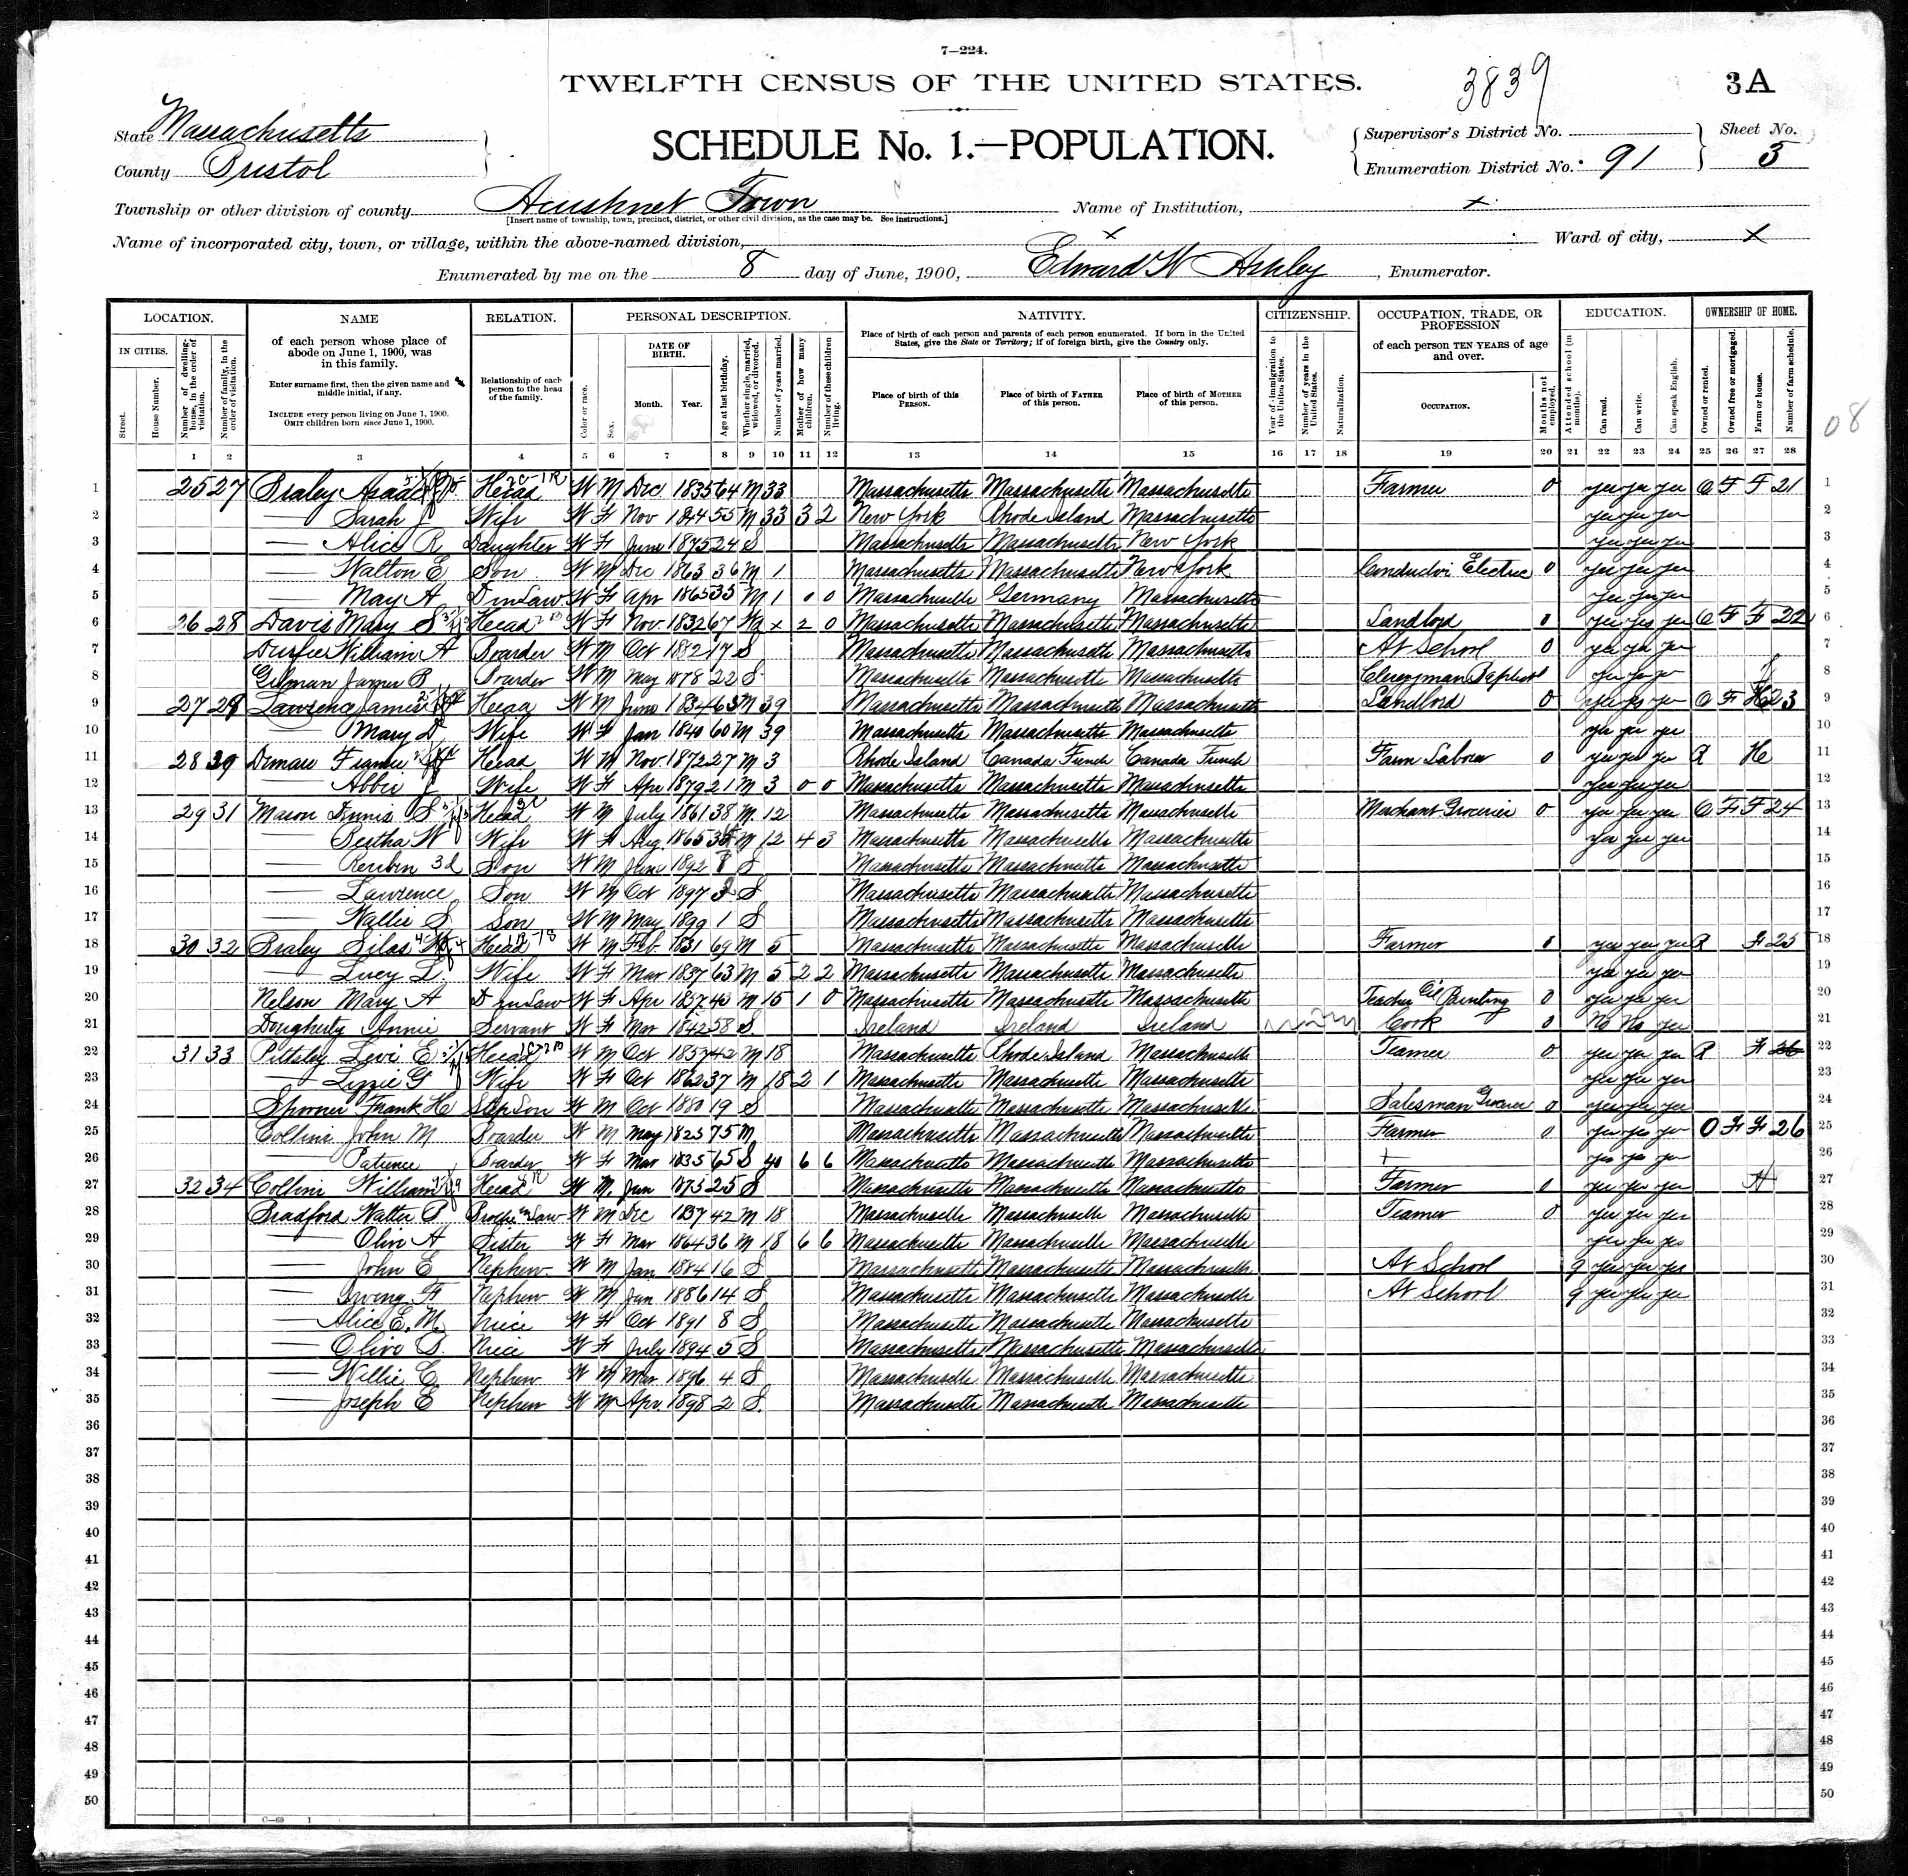 7—224.
TWELFTH CENSUS OF THE UNITED STATES.
3839
3A
State Massachusetts
County Bristol
SCHEDULE No. 1.—POPULATION.
Supervisor's District No.
Enumeration District No. 91
Sheet No.
3
Township or other division of county Acushnet Town
[Insert name of township, town, precinct, district, or other civil division, as the case may be. See instructions.]
Name of Institution, x
Name of incorporated city, town, or village, within the above-named division, x
Ward of city, x
Enumerated by me on the 8 day of June, 1900, Edward W Ashley, Enumerator.
LOCATION. NAME RELATION. PERSONAL DESCRIPTION. NATIVITY. CITIZENSHIP. OCCUPATION, TRADE, OR PROFESSION EDUCATION. OWNERSHIP OF HOME.
IN CITIES.
Street.
House Number.
Number of dwelling-house, in the order of visitation.
Number of family, in the order of visitation.
of each person whose place of abode on June 1, 1900, was in this family.
Enter surname first, then the given name and middle initial, if any.
INCLUDE every person living on June 1, 1900.
OMIT children born since June 1, 1900.
Relationship of each person to the head of the family.
Color or race.
Sex.
DATE OF BIRTH.
Month.
Year.
Age at last birthday.
Whether single, married, widowed, or divorced.
Number of years married.
Mother of how many children.
Number of these children living.
Place of birth of each person and parents of each person enumerated. If born in the United States, give the State or Territory; if of foreign birth, give the Country only.
Place of birth of this PERSON.
Place of birth of FATHER of this person.
Place of birth of MOTHER of this person.
Year of immigration to the United States.
Number of years in the United States.
Naturalization.
of each person TEN YEARS of age and over.
OCCUPATION.
Months not employed.
Attended school (in months).
Can read.
Can write.
Can speak English.
Owned or rented.
Owned free or mortgaged.
Farm or house.
Number of farm schedule.
08
1 2 3 4 5 6 7 8 9 10 11 12 13 14 15 16 17 18 19 20 21 22 23 24 25 26 27 28
1 25 27 Braley Isaac Head W M Dec 1835 64 M 33 Massachusetts Massachusetts Massachusetts Farmer 0 yes yes yes O F F 21 1
2 — Sarah J Wife W F Nov 1844 55 M 33 3 2 New York Rhode Island Massachusetts yes yes yes 2
3 — Alice R Daughter W F June 1875 24 S Massachusetts Massachusetts New York yes yes yes 3
4 — Walton E Son W M Dec 1863 36 M 1 Massachusetts Massachusetts New York Conductor Electric 0 yes yes yes 4
5 — May A D in Law W F Apr 1865 35 M 1 0 0 Massachusetts Germany Massachusetts yes yes yes 5
6 26 28 Davis Mary S Head W F Nov 1832 67 Wd x 2 0 Massachusetts Massachusetts Massachusetts Landlord 0 yes yes yes O F F 22 6
7 Durfee William A Boarder W M Oct 1882 17 S Massachusetts Massachusetts Massachusetts At School 0 yes yes yes 7
8 Gilman James B Boarder W M May 1878 22 S Massachusetts Massachusetts Massachusetts Clergyman Baptist yes yes yes 8
9 27 29 Lawrence James Head W M June 1834 65 M 39 Massachusetts Massachusetts Massachusetts Landlord 0 yes yes yes O F 23 9
10 — Mary D Wife W F Jan 1840 60 M 39 Massachusetts Massachusetts Massachusetts yes yes yes 10
11 28 30 Head W M Nov 1872 27 M 3 Rhode Island Canada French Canada French Farm Labor 0 yes yes yes R H 11
12 — Abbie J Wife W F Apr 1879 21 M 3 0 0 Massachusetts Massachusetts Massachusetts yes yes yes 12
13 29 31 Mason Dennis S Head W M July 1861 38 M 12 Massachusetts Massachusetts Massachusetts Merchant Groceries 0 yes yes yes O F F 24 13
14 — Bertha W Wife W F Aug 1865 M 12 4 3 Massachusetts Massachusetts Massachusetts yes yes yes 14
15 — Reubin 3d Son W M June 1892 S Massachusetts Massachusetts Massachusetts 15
16 — Lawrence Son W M Oct 1897 2 S Massachusetts Massachusetts Massachusetts 16
17 — Wallie S Son W M May 1899 1 S Massachusetts Massachusetts Massachusetts 17
18 30 32 Braley Silas Head W M Feb 1831 69 M 5 Massachusetts Massachusetts Massachusetts Farmer 0 yes yes yes R F 25 18
19 — Lucy L. Wife W F Mar 1837 63 M 5 2 2 Massachusetts Massachusetts Massachusetts yes yes yes 19
20 Nelson Mary A D in Law W F Apr 1857 43 M 15 1 0 Massachusetts Massachusetts Massachusetts Teacher Oil Painting 0 yes yes yes 20
21 Dougherty Annie Servant W F Mar 1842 58 S Ireland Ireland Ireland Cook 0 No No yes 21
22 31 33 Pittsley Levi E Head W M Oct 1857 42 M 18 Massachusetts Rhode Island Massachusetts Teamer 0 yes yes yes R F 26 22
23 — Lizzie G Wife W F Oct 1862 37 M 18 2 1 Massachusetts Massachusetts Massachusetts yes yes yes 23
24 Spooner Frank H Step Son W M Oct 1880 19 S Massachusetts Massachusetts Massachusetts Salesman Grocer 0 yes yes yes 24
25 Collins John M Boarder W M May 1825 75 M Massachusetts Massachusetts Massachusetts Farmer 0 yes yes yes O F F 26 25
26 — Patience Boarder W F Mar 1835 65 S 40 6 6 Massachusetts Massachusetts Massachusetts yes yes yes 26
27 32 34 Collins William Head W M Jun 1875 25 S Massachusetts Massachusetts Massachusetts Farmer 0 yes yes yes H 27
28 Bradford Walter P Brother in Law W M Dec 1857 42 M 18 Massachusetts Massachusetts Massachusetts Teamer 0 yes yes yes 28
29 — Oliv A Sister W F Mar 1864 36 M 18 6 6 Massachusetts Massachusetts Massachusetts yes yes yes 29
30 — John E Nephew W M Jan 1884 16 S Massachusetts Massachusetts Massachusetts At School 9 yes yes yes 30
31 — Irving F Nephew W M Jan 1886 14 S Massachusetts Massachusetts Massachusetts At School 9 yes yes yes 31
32 — Alice E. M. Niece W F Oct 1891 8 S Massachusetts Massachusetts Massachusetts 32
33 — Olive B. Niece W F July 1894 5 S Massachusetts Massachusetts Massachusetts 33
34 — Willie C Nephew W M Mar 1896 4 S Massachusetts Massachusetts Massachusetts 34
35 — Joseph E Nephew W M Apr 1898 2 S Massachusetts Massachusetts Massachusetts 35
36 36
37 37
38 38
39 39
40 40
41 41
42 42
43 43
44 44
45 45
46 46
47 47
48 48
49 49
50 50